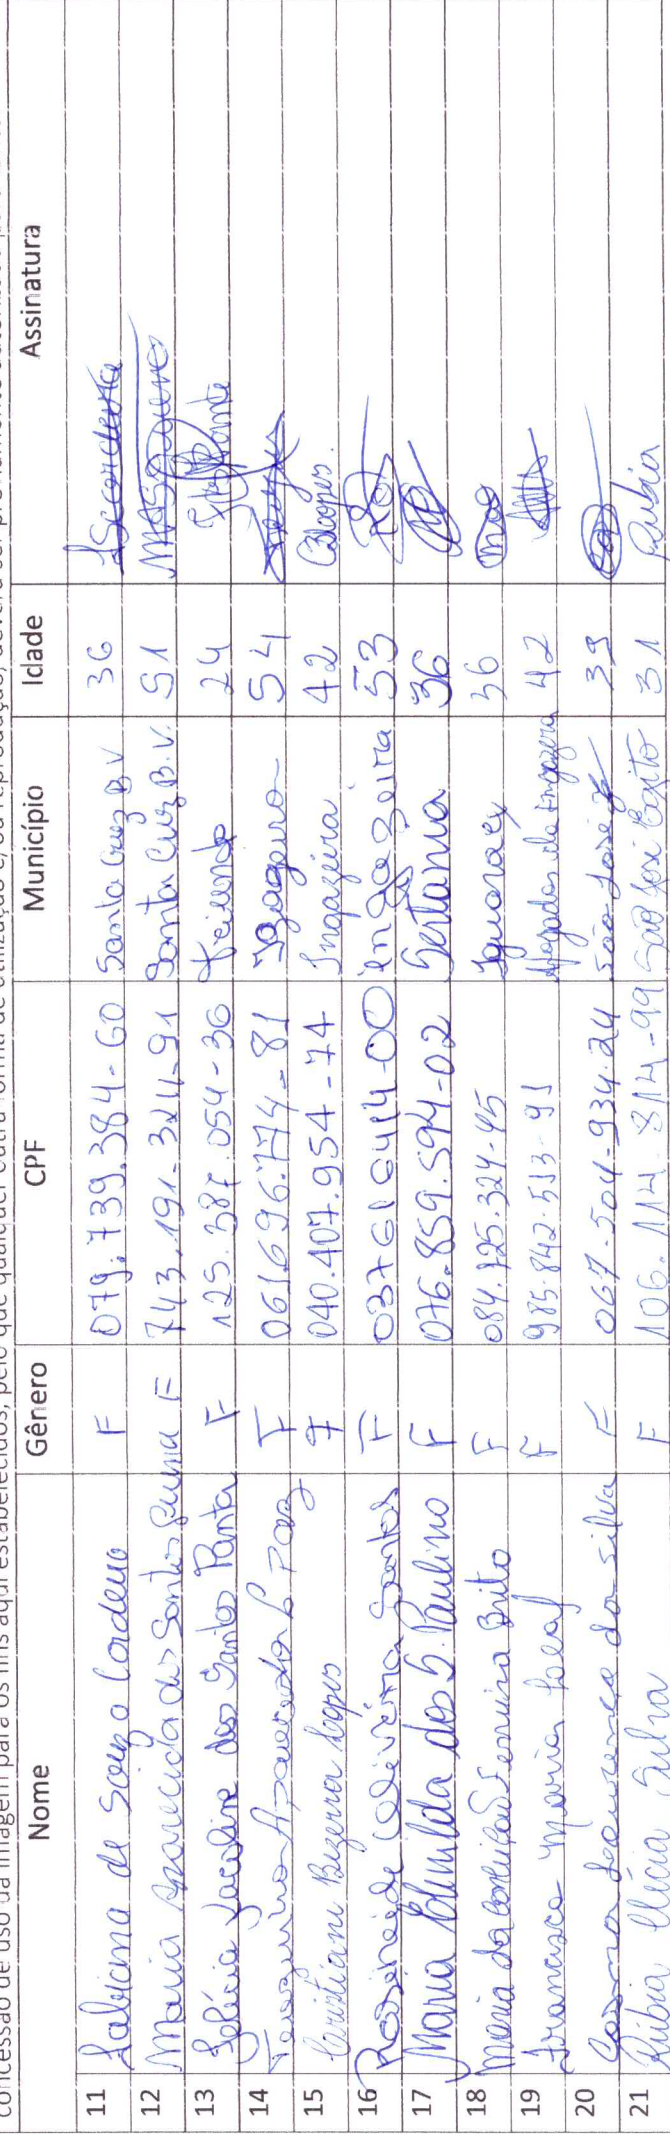 concessão de uso da imagem para os fins aqui estabelecidos, pelo que qualquer outra forma de utilização e/ou reprodução, deverá ser previamente
Nome Gênero CPF Município Idade Assinatura
11 Fabiana de Souza Cordeiro F 079.739.384-60 Santa Cruz B V 36
12 Maria Aparecida dos Santos F 743.191.324-91 Santa Cruz B.V. 51
13 Jaceline dos Santos F 125.587.054-36 24
14 Aparecida L Paz F 061.696.774-81 54
15 Cristiane Bizerra Lopes F 040.407.954-74 Ingazeira 42 CBLopes.
16 Rosineide Oliveira Santos F 037616414-00 ingazeira 53
17 Maria dos S. Paulino F 076.859.594-02 Sertania 36
18 Maria da Conceição Ferreira Brito F 084.125.324-45 Iguaracy 36
19 Francisca Maria Leal F 985.842.513-91 Afogados da Ingazeira 42
20 Cosma Lourenço da Silva F 067.504.934.24 São José 39
21 Rúbia Clécia Silva F 106.114.814-99 São José Egito 31 Rubia